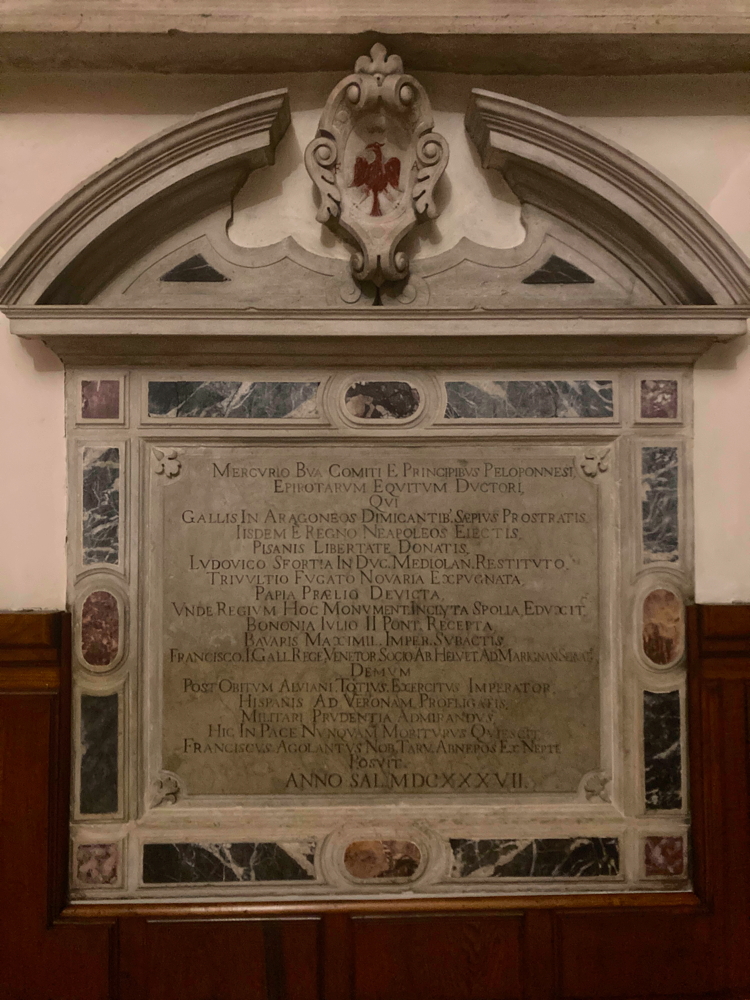 MERCVRIO BVA COMITI E PRINCIPIBVS PELOPONNESI,
EPIROTARVM EQVITVM DVCTORI,
QVI
GALLIS IN ARAGONEOS DIMICANTIB, SÆPIVS PROSTRATIS,
IISDEM E REGNO NEAPOLEOS EIECTIS,
PISANIS LIBERTATE DONATIS,
LVDOVICO SFORTIA IN DVC. MEDIOLAN. RESTITVTO,
TRIVVLTIO FVGATO NOVARIA EXPVGNATA,
PAPIA PRÆLIO DEVICTA,
VNDE REGIVM HOC MONVMENT. INCLYTA SPOLIA, EDVXIT,
BONONIA IVLIO II PONT. RECEPTA,
BAVARIS MAXIMIL. IMPER. SVBACTIS,
FRANCISCO. I GALL. REGE VENETOR. SOCIO AB HELVET. AD MARIGNAN. SERVAT,
DEMVM
POST OBITVM ALVIANI TOTIVS. EXERCITVS IMPERATOR,
HISPANIS AD VERONAM, PROFLIGATIS,
MILITARI PRVDENTIA ADMIRANDVS,
HIC IN PACE NVNQVAM MORITVRVS QVIESCIT
FRANCISCVS. AGOLANTVS NOB. TARV. ABNEPOS EX NEPTE
POSVIT.
ANNO SAL. MDCXXXVII.